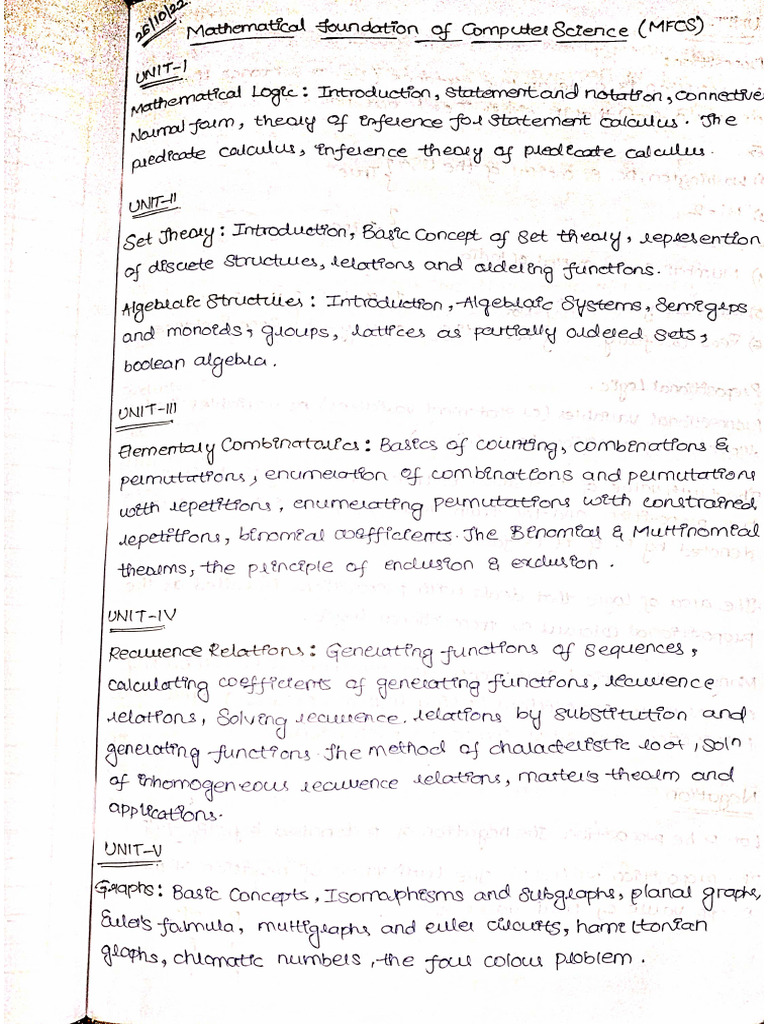 26/10/22
Mathematical foundation of Computer Science (MFCS)
UNIT-I
Mathematical Logic: Introduction, statement and notation, connective
Normal form, theory of inference for statement calculus. The
predicate calculus, inference theory of predicate calculus.
UNIT-II
Set Theory: Introduction, Basic Concept of set theory, represention
of discrete structures, relations and ordering functions.
Algebraic Structures: Introduction, Algebraic Systems, Semigrps
and monoids, groups, lattices as partially ordered sets,
boolean algebra.
UNIT-III
Elementary Combinatorics: Basics of counting, combinations &
permutations, enumeration of combinations and permutations
with repetitions, enumerating permutations with constrained
repetitions, binomial coefficients. The Binomial & Multinomial
theorms, the principle of enclusion & exclusion.
UNIT-IV
Recurrence Relations: Generating functions of sequences,
calculating coefficients of generating functions, recurrence
relations, Solving recurrence. relations by substitution and
generating functions. The method of characteristic root, soln
of inhomogeneous recurrence relations, masters theorm and
applications.
UNIT-V
Graphs: Basic Concepts, Isomorphisms and subgraphs, planar graphs,
Euler's formula, multigraphs and euler circuits, hamiltonian
graphs, chromatic numbers, the four colour problem.